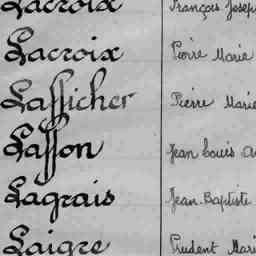 Lacroix François Josep
Lacroix Pierre Marie
Lafficher Pierre Marie
Laffon Jean Louis
Lagrais Jean-Baptiste
Laigre Prudent Mari